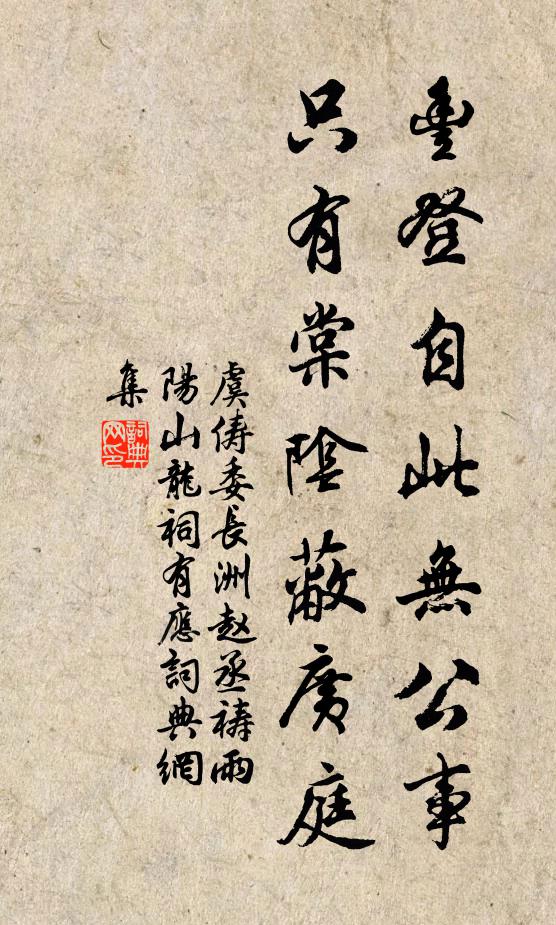 豐登自此無公事
只有棠陰蔽廣庭
虞儔委長洲赵丞禱雨
陽山龍祠有應詞典網
集
詞典
网印